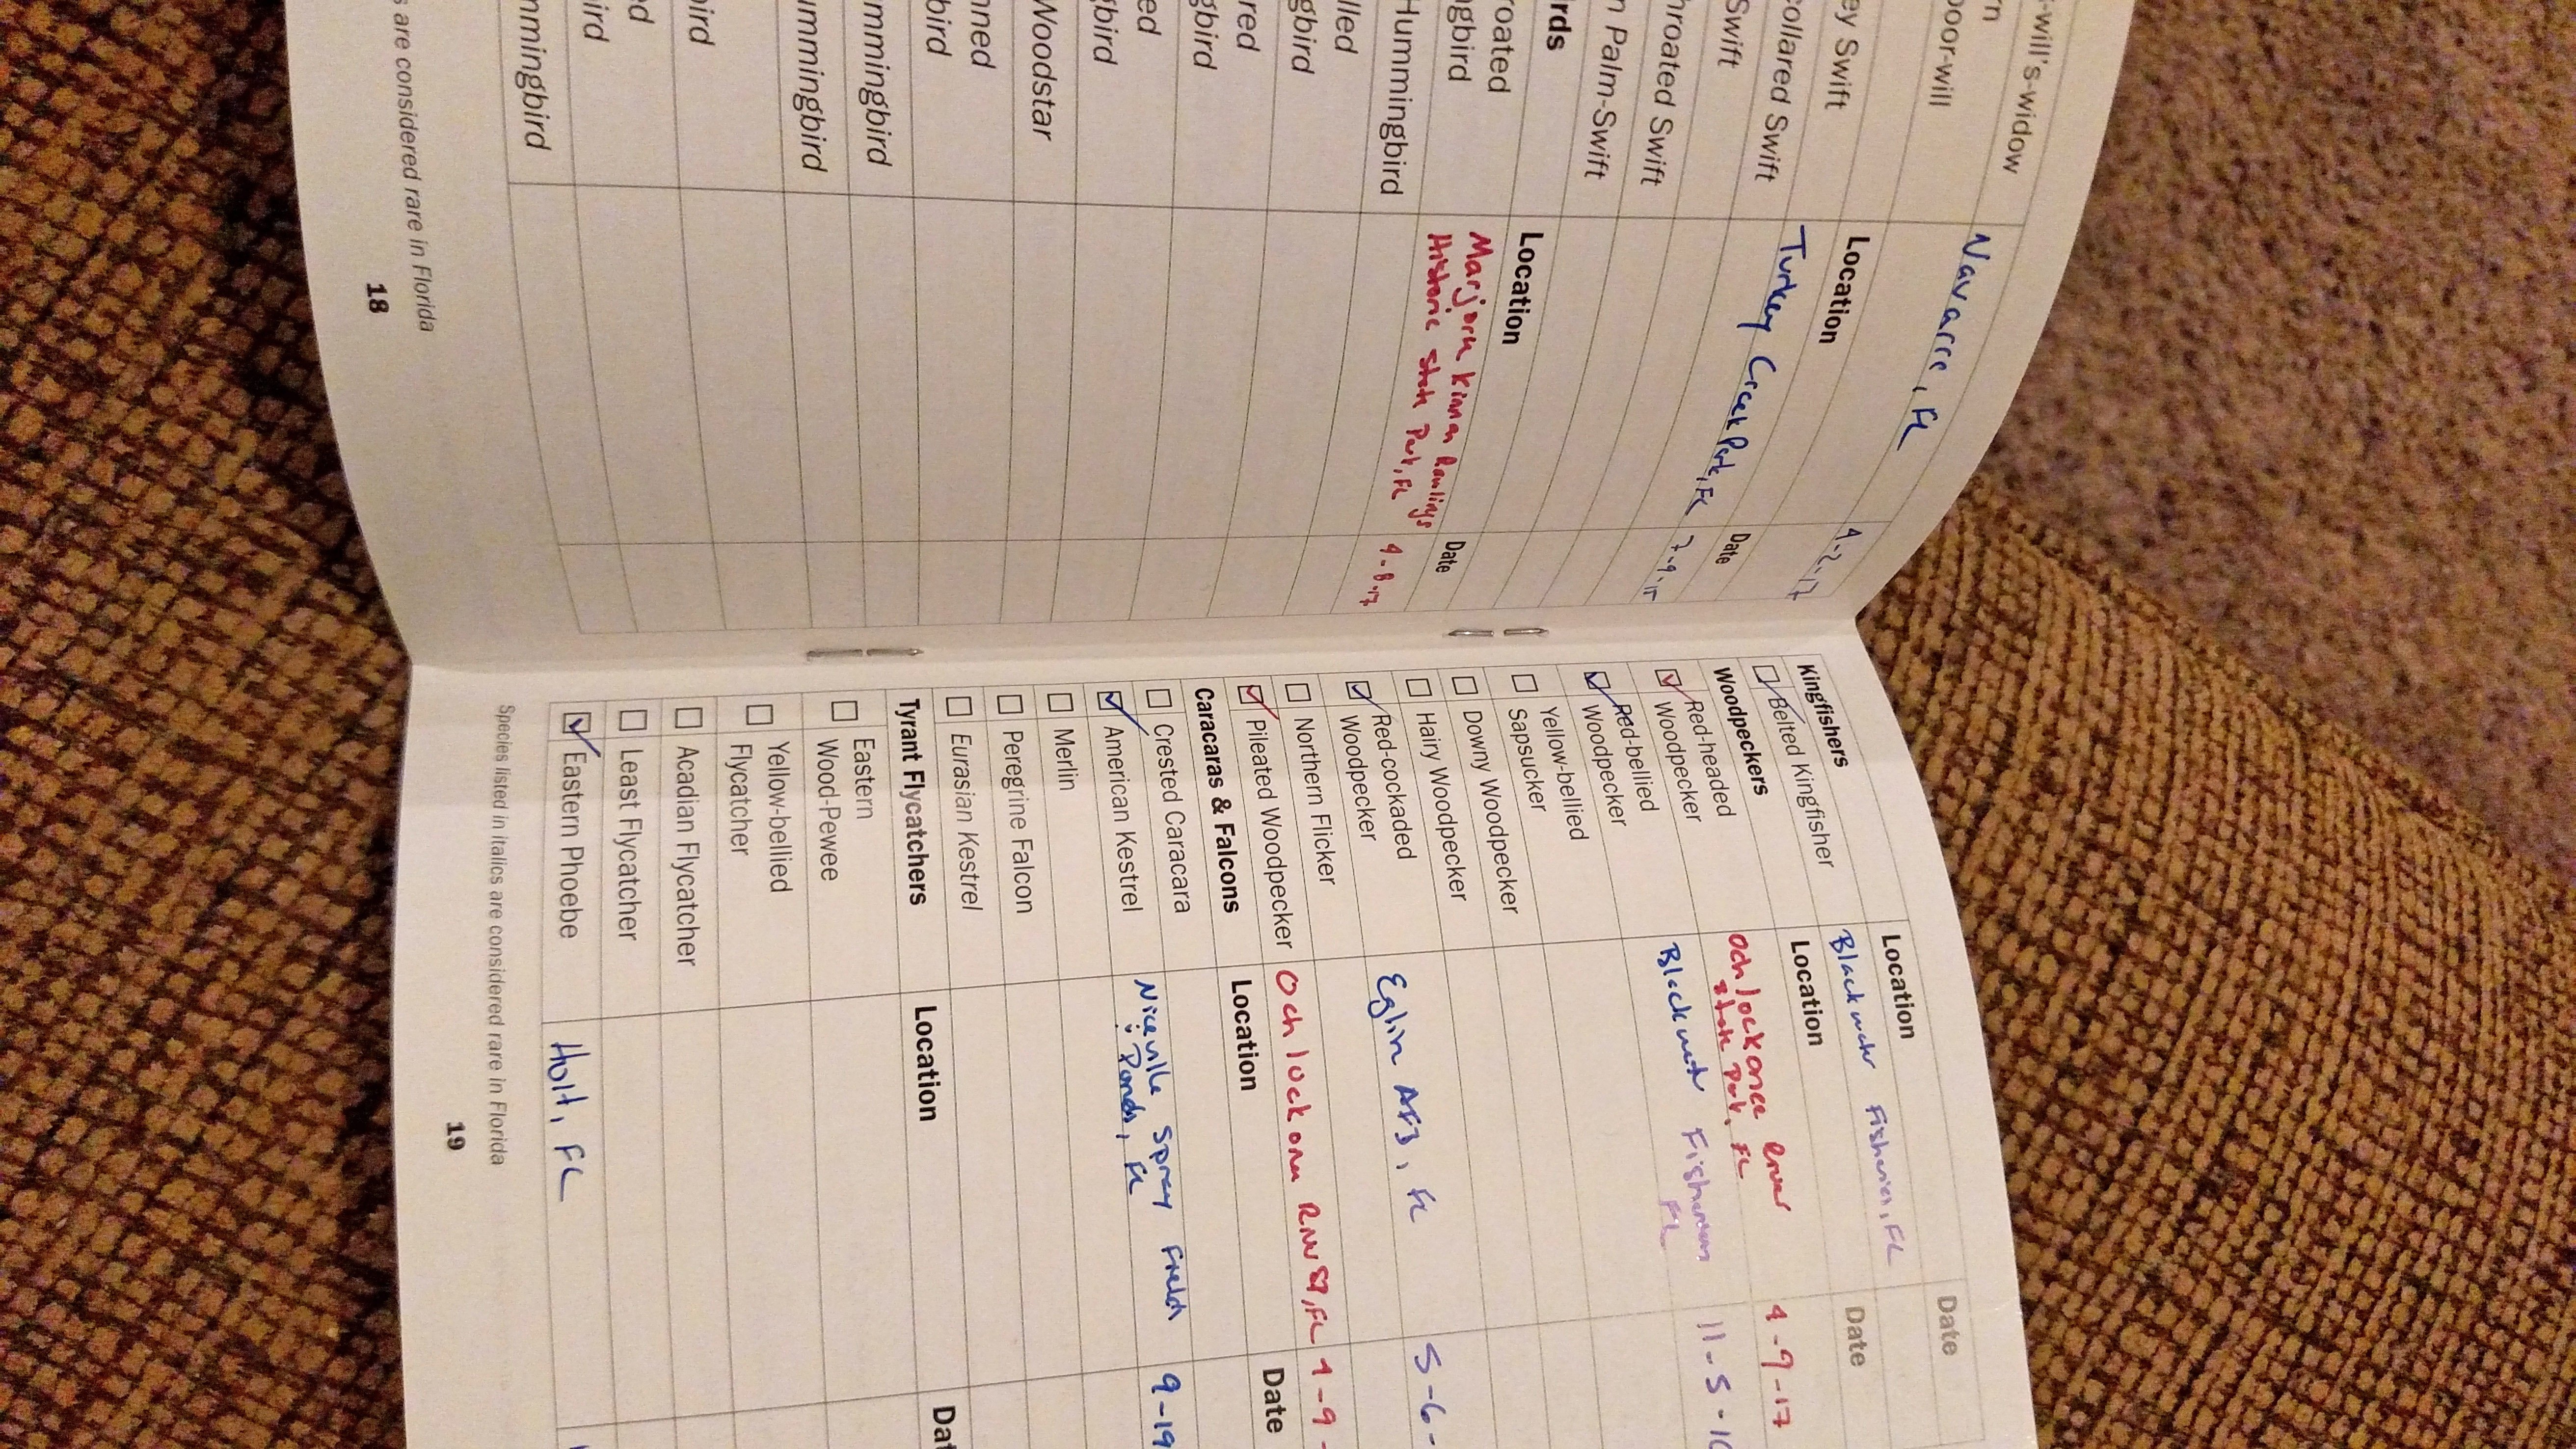 -will's-widow
Navarre, FL
4-2-17
oor-will
Location
Date
ey Swift
Turkey Creek Park, FL
7-9-15
ollared Swift
Swift
hroated Swift
n Palm-Swift
rds
Location
Date
roated
gbird
Historic State Park, FL
4-8-17
Hummingbird
lled
gbird
red
gbird
ed
gbird
Woodstar
nned
bird
mmingbird
ummingbird
bird
ed
ird
mmingbird
s are considered rare in Florida
18
Kingfishers
Location
Date
Belted Kingfisher
Fisheries, FL
Woodpeckers
Location
Date
Red-headed
Woodpecker
Ochlockonee River
State Park, FL
4-9-17
Red-bellied
Woodpecker
FL
11-5-1
Yellow-bellied
Sapsucker
Downy Woodpecker
Hairy Woodpecker
Red-cockaded
Woodpecker
Eglin AFB, FL
5-6-
Northern Flicker
Pileated Woodpecker
4-9-
Caracaras & Falcons
Location
Date
Crested Caracara
American Kestrel
Niceville Spray Field
Ponds, FL
9-19
Merlin
Peregrine Falcon
Eurasian Kestrel
Tyrant Flycatchers
Location
Dat
Eastern
Wood-Pewee
Yellow-bellied
Flycatcher
Acadian Flycatcher
Least Flycatcher
Eastern Phoebe
Holt, FL
Species listed in italics are considered rare in Florida
19